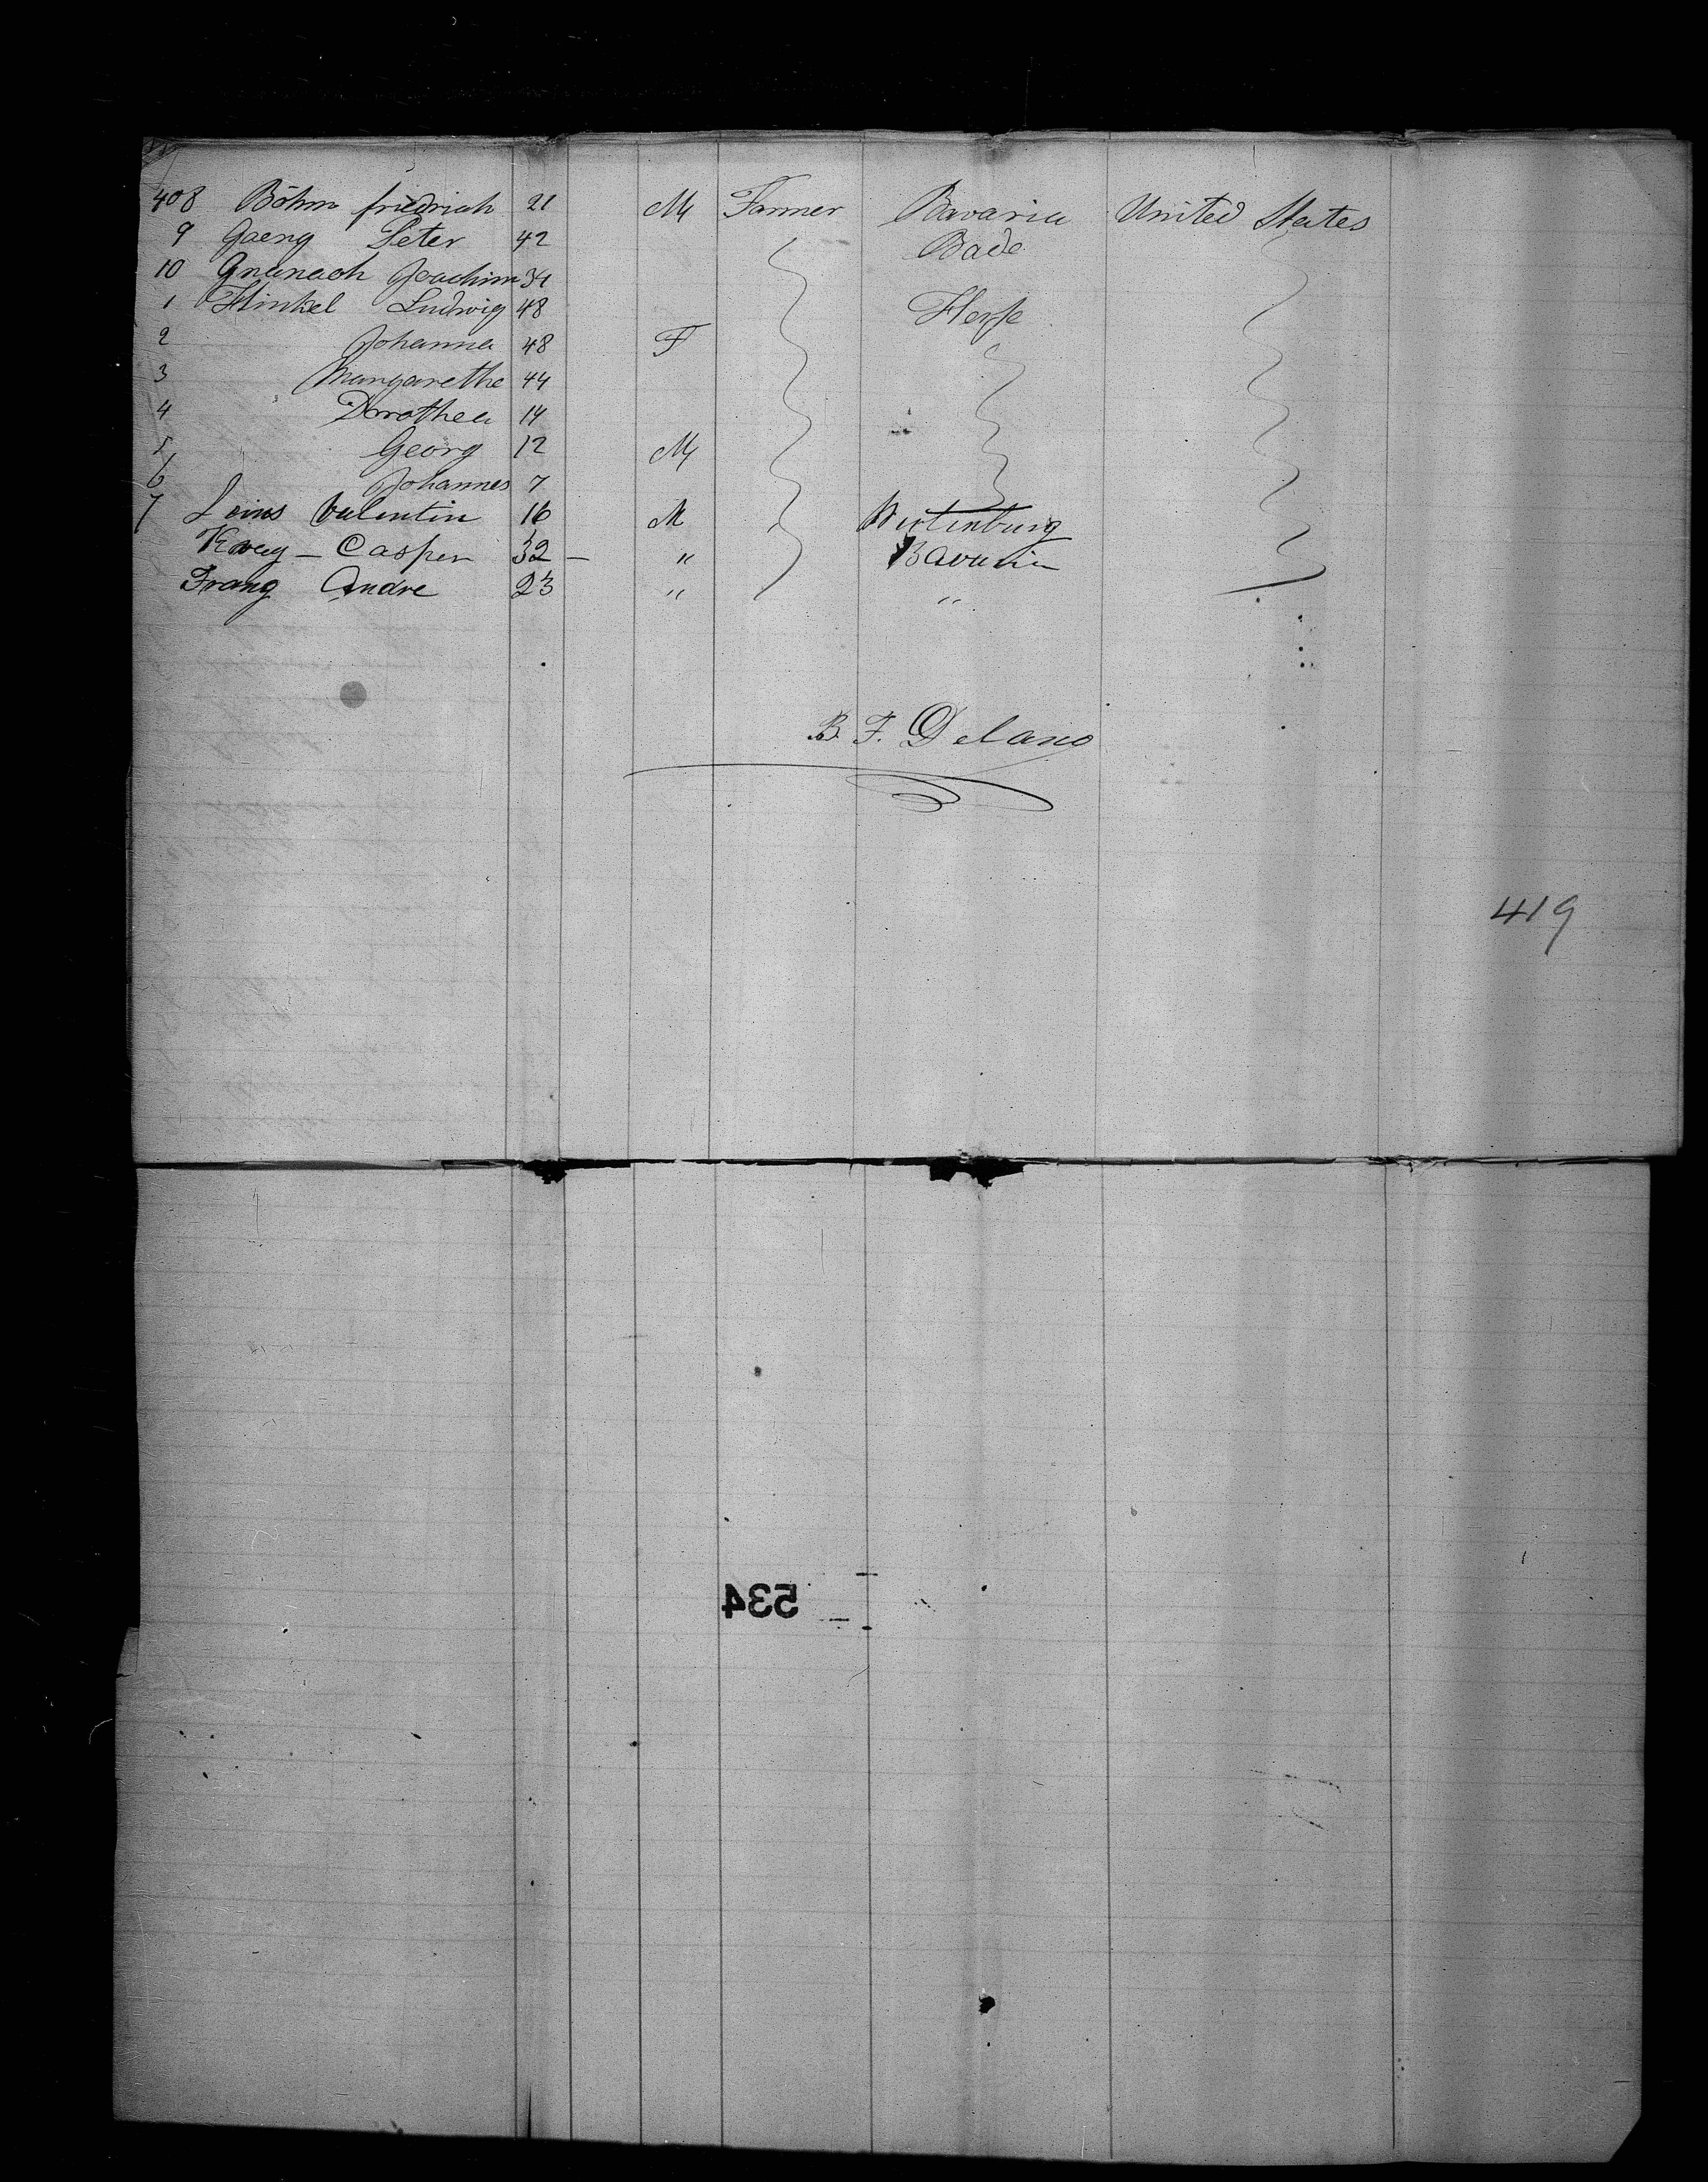 408 Böhm friedrich 21 M Farmer Bavaria United States
9 Gaeng Peter 42 Bade
10 Gnänach Joachim 34
1 Hinkel Ludwig 48 Hesse
2 Johanna 48 F
3 Margarethe 44
4 Dorothea 14
5 Georg 12 M
6 Johannes 7
7 Leins Valentin 16 M Wirtenburg
Casper 32 — " Bavaria
Frang Andre 23 " "
B. F. Delano
419
534